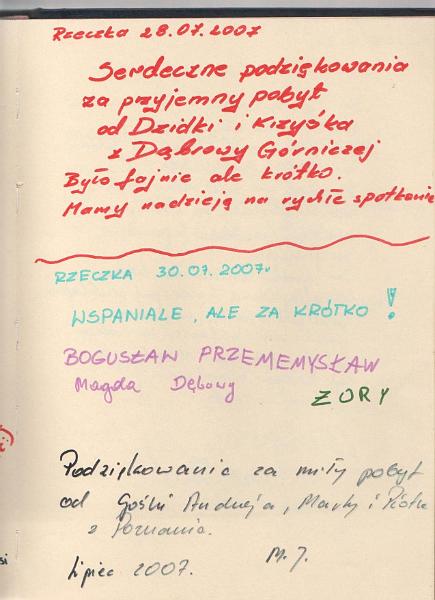 Rzeczka 28.07.2007
Serdeczne podziękowania
za przyjemny pobyt
od Dzidki i Krzyśka
z Dąbrowy Górniczej
Było fajnie ale krótko.
Mamy nadzieję na rychłe spotkanie
RZECZKA 30.07.2007r
WSPANIALE, ALE ZA KRÓTKO!
BOGUSŁAW PRZEMEMYSŁAW
Magda Dębowy
ŻORY
Podziękowania za miły pobyt
od Gośki Andrzeja, Marty i Piotra
z Poznania.
M.J.
Lipiec 2007.